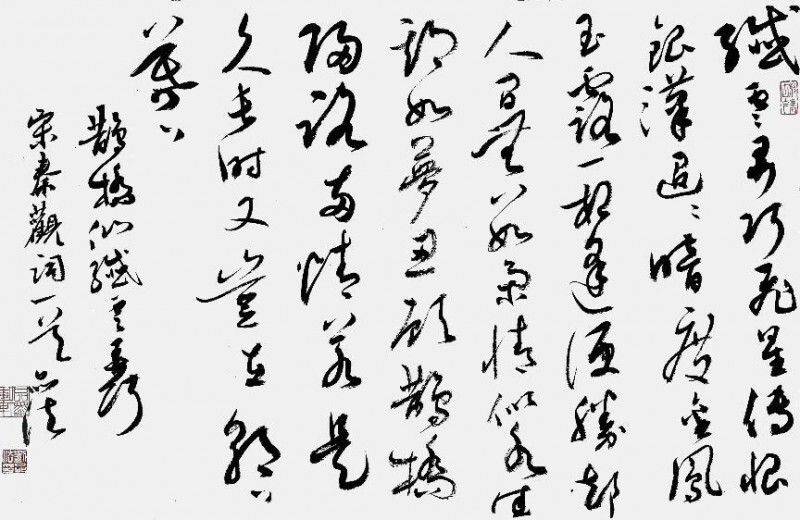 纖雲弄巧飛星傳恨
銀漢迢〻暗度金風
玉露一相逢便勝却
人間無數柔情似水佳
期如夢忍顧鵲橋
歸路兩情若是
久長時又豈在朝〻
暮〻
鵲橋仙纖雲弄巧
宋秦觀詞一首